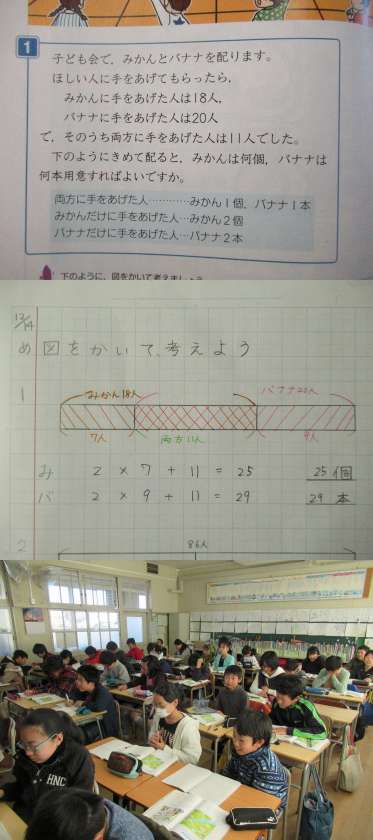 1
子ども会で，みかんとバナナを配ります。
ほしい人に手をあげてもらったら，
みかんに手をあげた人は18人，
バナナに手をあげた人は20人
で，そのうち両方に手をあげた人は11人でした。
下のようにきめて配ると，みかんは何個，バナナは
何本用意すればよいですか。
両方に手をあげた人…………みかん1個，バナナ1本
みかんだけに手をあげた人…みかん2個
バナナだけに手をあげた人…バナナ2本
下のように，図をかいて考えましょう
12/14
め 図をかいて、考えよう
1
みかん18人 バナナ20人
7人 両方11人 9人
み 2 × 7 + 11 = 25 25個
バ 2 × 9 + 11 = 29 29本
2
86人
HNC